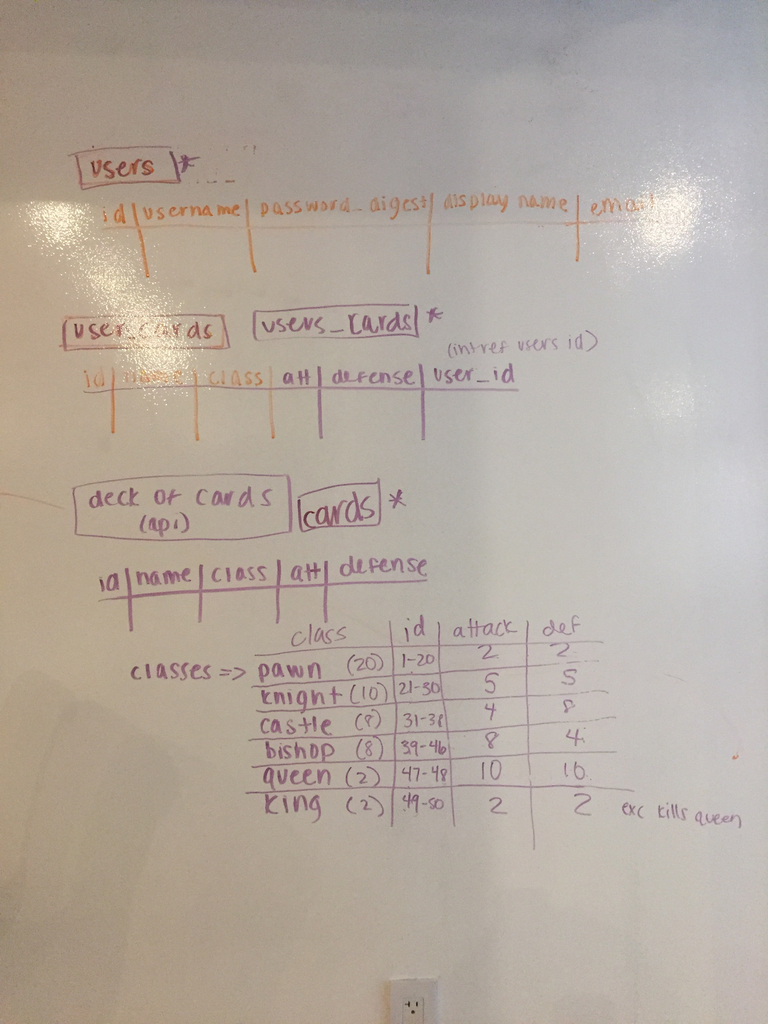 users *
id | username | password_digest | display name | email
user_cards users_cards *
(int ref users id)
id | name | class | att | defense | user_id
deck of cards cards *
(api)
id | name | class | att | defense
class | id | attack | def
classes => pawn (20) | 1-20 | 2 | 2
knight (10) | 21-30 | 5 | 5
castle (8) | 31-38 | 4 | 8
bishop (8) | 39-46 | 8 | 4
queen (2) | 47-48 | 10 | 10
king (2) | 49-50 | 2 | 2 exc kills queen